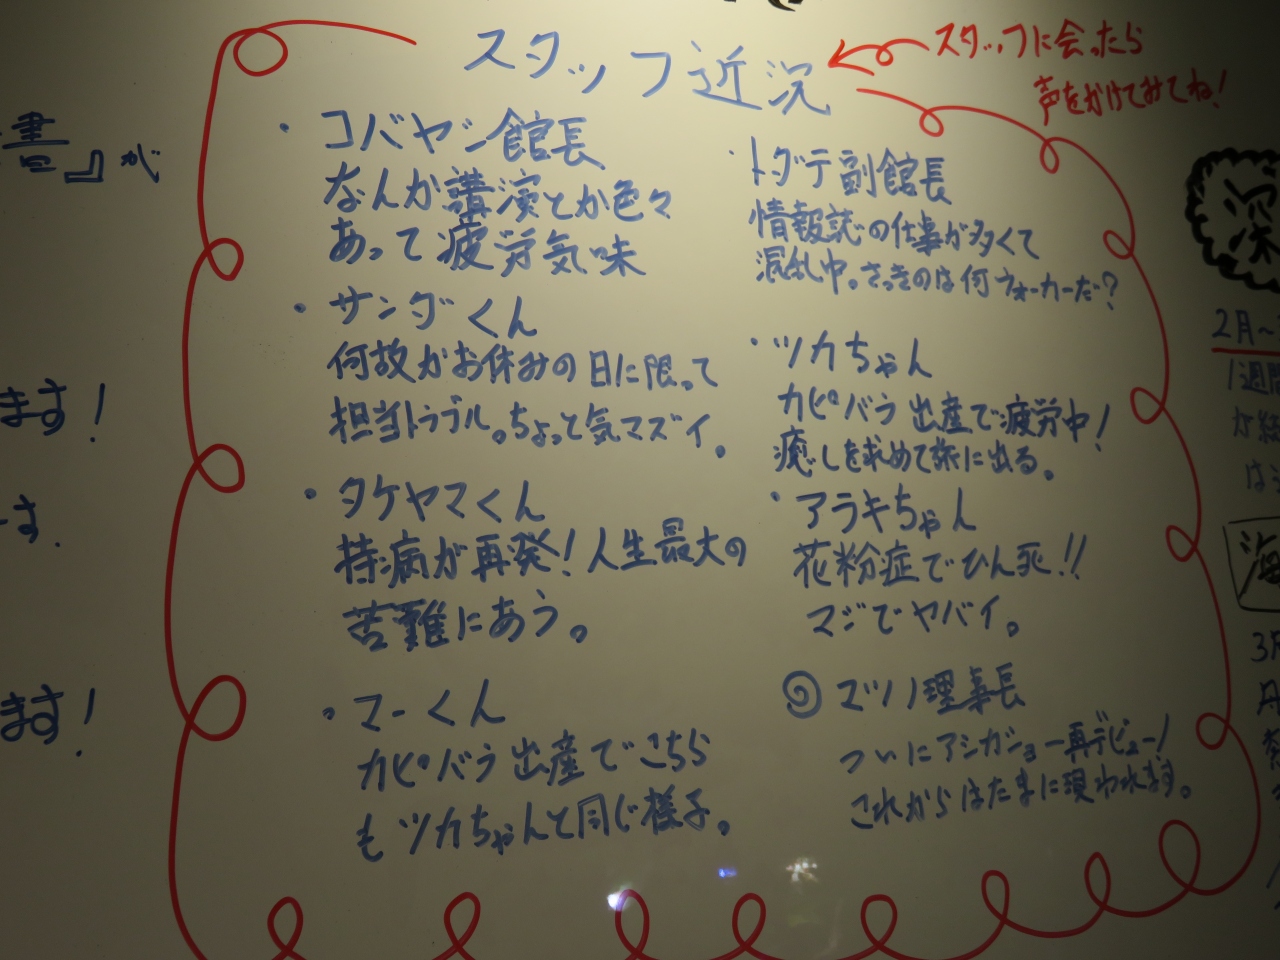 スタッフ近況
スタッフに会ったら
声をかけてみてね！
・コバヤシ館長
なんか講演とか色々
あって疲労気味
・サンダくん
何故かお休みの日に限って
担当トラブル。ちょっと気マズイ。
・タケヤマくん
持病が再発！人生最大の
苦難にあう。
・マーくん
カピバラ出産でこちら
もツカちゃんと同じ様子。
・トダテ副館長
情報誌の仕事が多くて
混乱中。さっきのは何フォーカーだ？
・ツカちゃん
カピバラ出産で疲労中！
癒しを求めて旅に出る。
・アラキちゃん
花粉症でひん死!!
マジでヤバイ。
マツノ理事長
ついにアシカショー再デビュー！
これからはたまに現われます。
書』が
ます！
す.
ます！
深
2月〜
1週間
が
は
海
3月